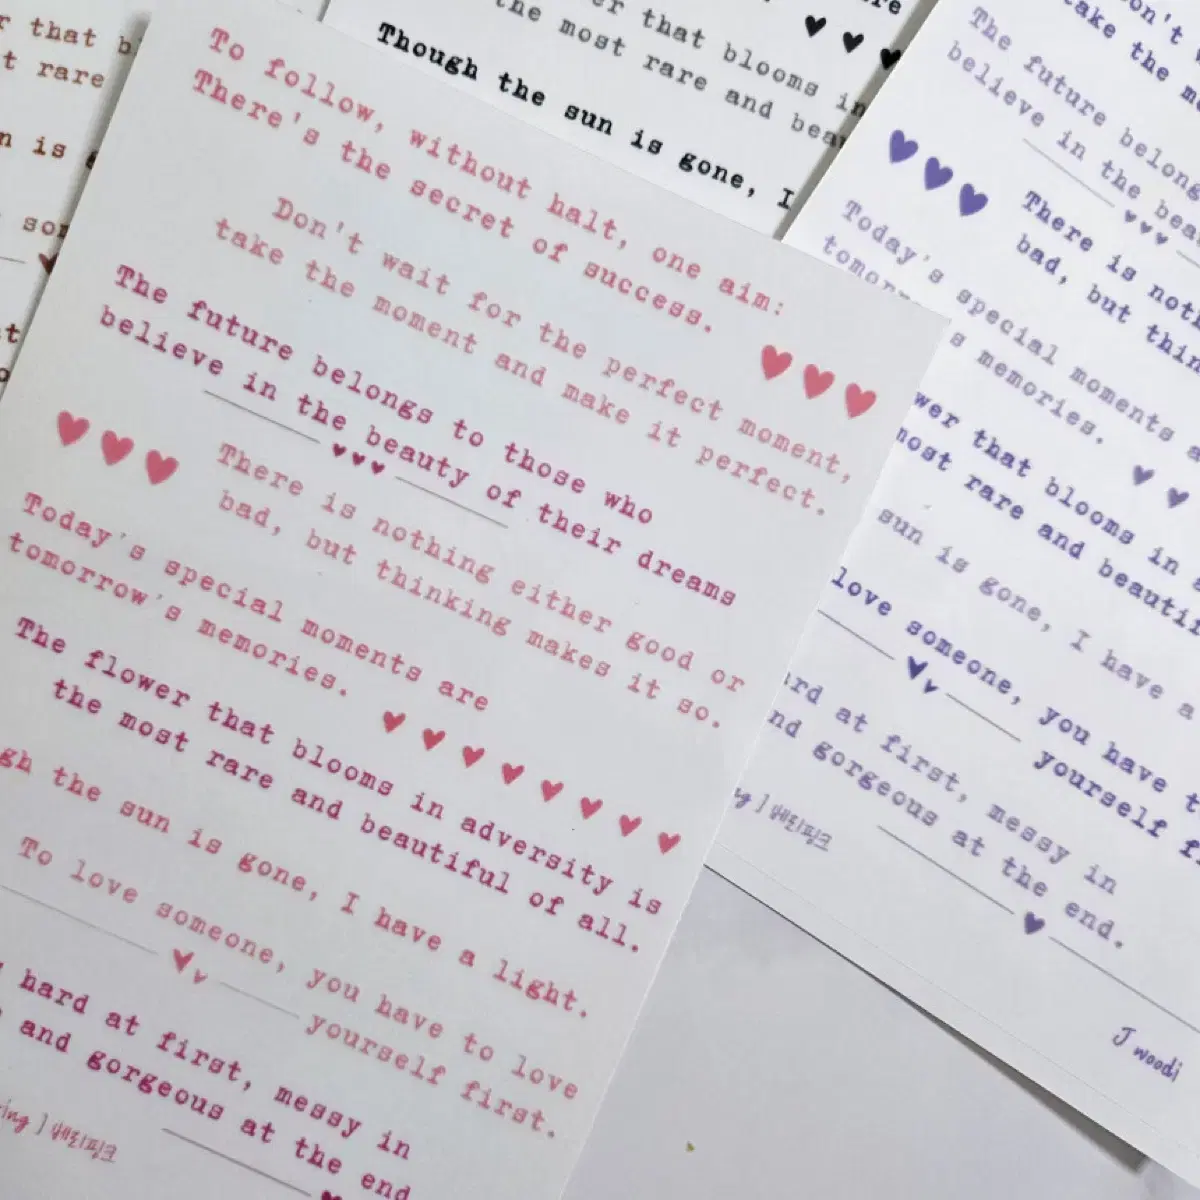 To follow, without halt, one aim:
There's the secret of success.
Don't wait for the perfect moment,
take the moment and make it perfect.
The future belongs to those who
believe in the beauty of their dreams
There is nothing either good or
bad, but thinking makes it so.
Today's special moments are
tomorrow's memories.
The flower that blooms in adversity is
the most rare and beautiful of all.
the sun is gone, I have a light.
To love someone, you have to love
yourself first.
hard at first, messy in
and gorgeous at the end
베리핑크
that
rare
is
that blooms in
the most rare and
Though the sun is gone, I
take the
The future
believe in the
There is
bad, but
Today's special moments
memories.
that blooms in
most rare and
sun is gone, I have a
love someone, you have
yourself
at first, messy in
gorgeous at the end.
베리핑크
J woodi